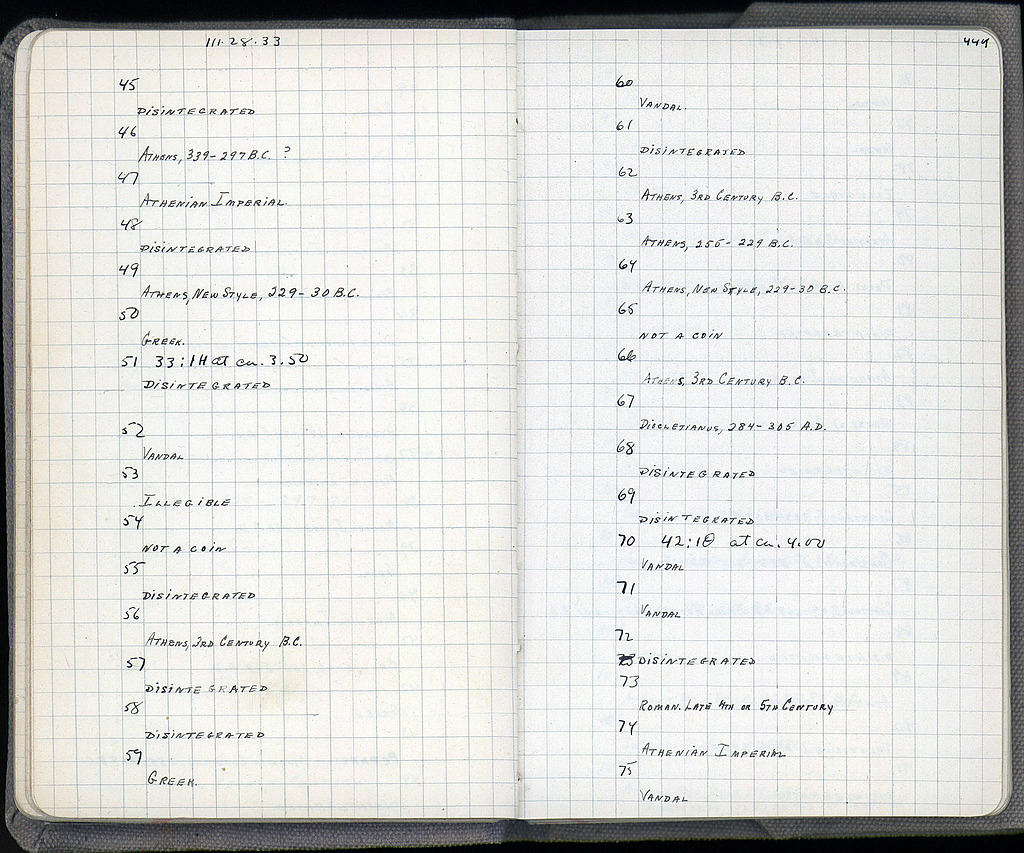 111.28.33
45
DISINTEGRATED
46
ATHENS, 339-297 B.C. ?
47
ATHENIAN IMPERIAL.
48
DISINTEGRATED
49
ATHENS, NEW STYLE, 229-30 B.C.
50
GREEK.
51 33:1H at ca. 3.50
DISINTEGRATED
52
VANDAL
53
ILLEGIBLE
54
NOT A COIN
55
DISINTEGRATED
56
ATHENS, 3RD CENTURY B.C.
57
DISINTEGRATED
58
DISINTEGRATED
59
GREEK.
444
60
VANDAL.
61
DISINTEGRATED
62
ATHENS, 3RD CENTURY B.C.
63
ATHENS, 256-229 B.C.
64
ATHENS, NEW STYLE, 229-30 B.C.
65
NOT A COIN
66
ATHENS, 3RD CENTURY B.C.
67
DIOCLETIANUS, 284-305 A.D.
68
DISINTEGRATED
69
DISINTEGRATED
70 42:1Θ at ca. 4.00
VANDAL
71
VANDAL
72
DISINTEGRATED
73
ROMAN. LATE 4TH OR 5TH CENTURY
74
ATHENIAN IMPERIAL
75
VANDAL